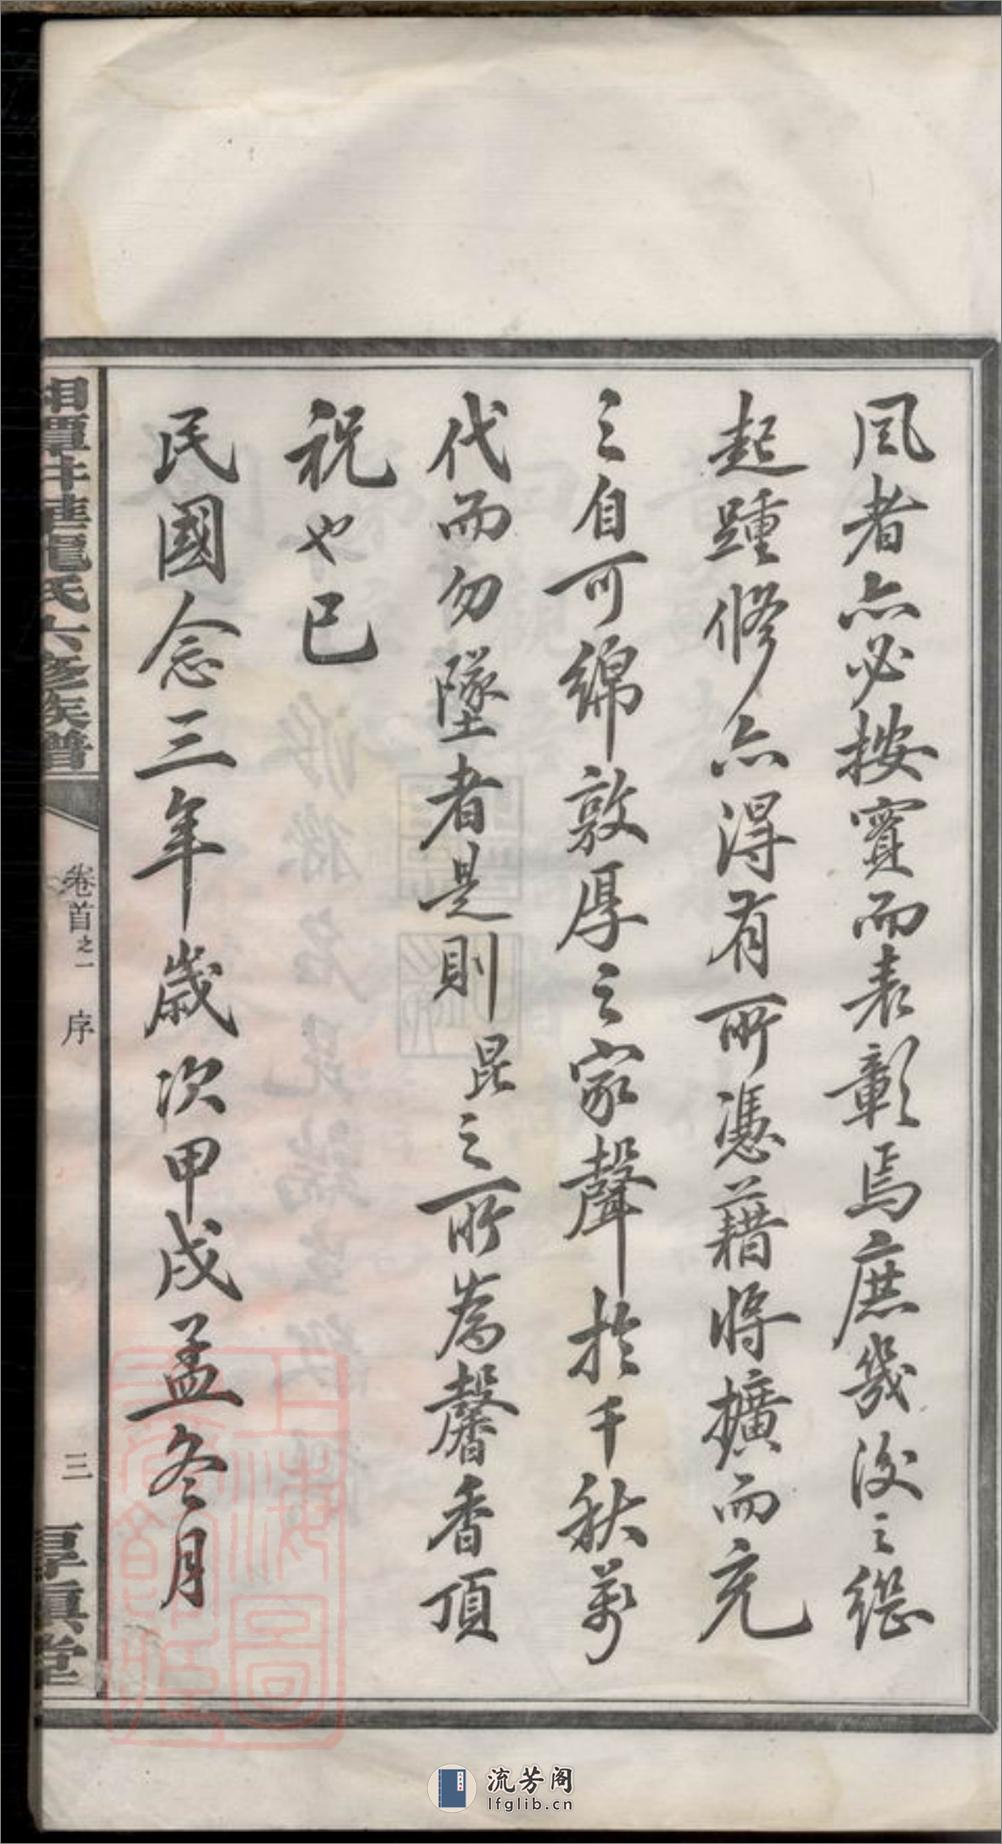 風者亦必按實而表彰焉庶幾後之繼
起踵修亦得有所憑藉將擴而充
之自可綿敦厚之家聲於千秋萬
代而勿墜者是則昆之所為馨香頂
祝也已
民國念三年歲次甲戌孟冬月
湘潭井湋龍氏六修族譜
卷首之一 序
三
厚真堂
上海圖書館藏
流芳阁
lfglib.cn